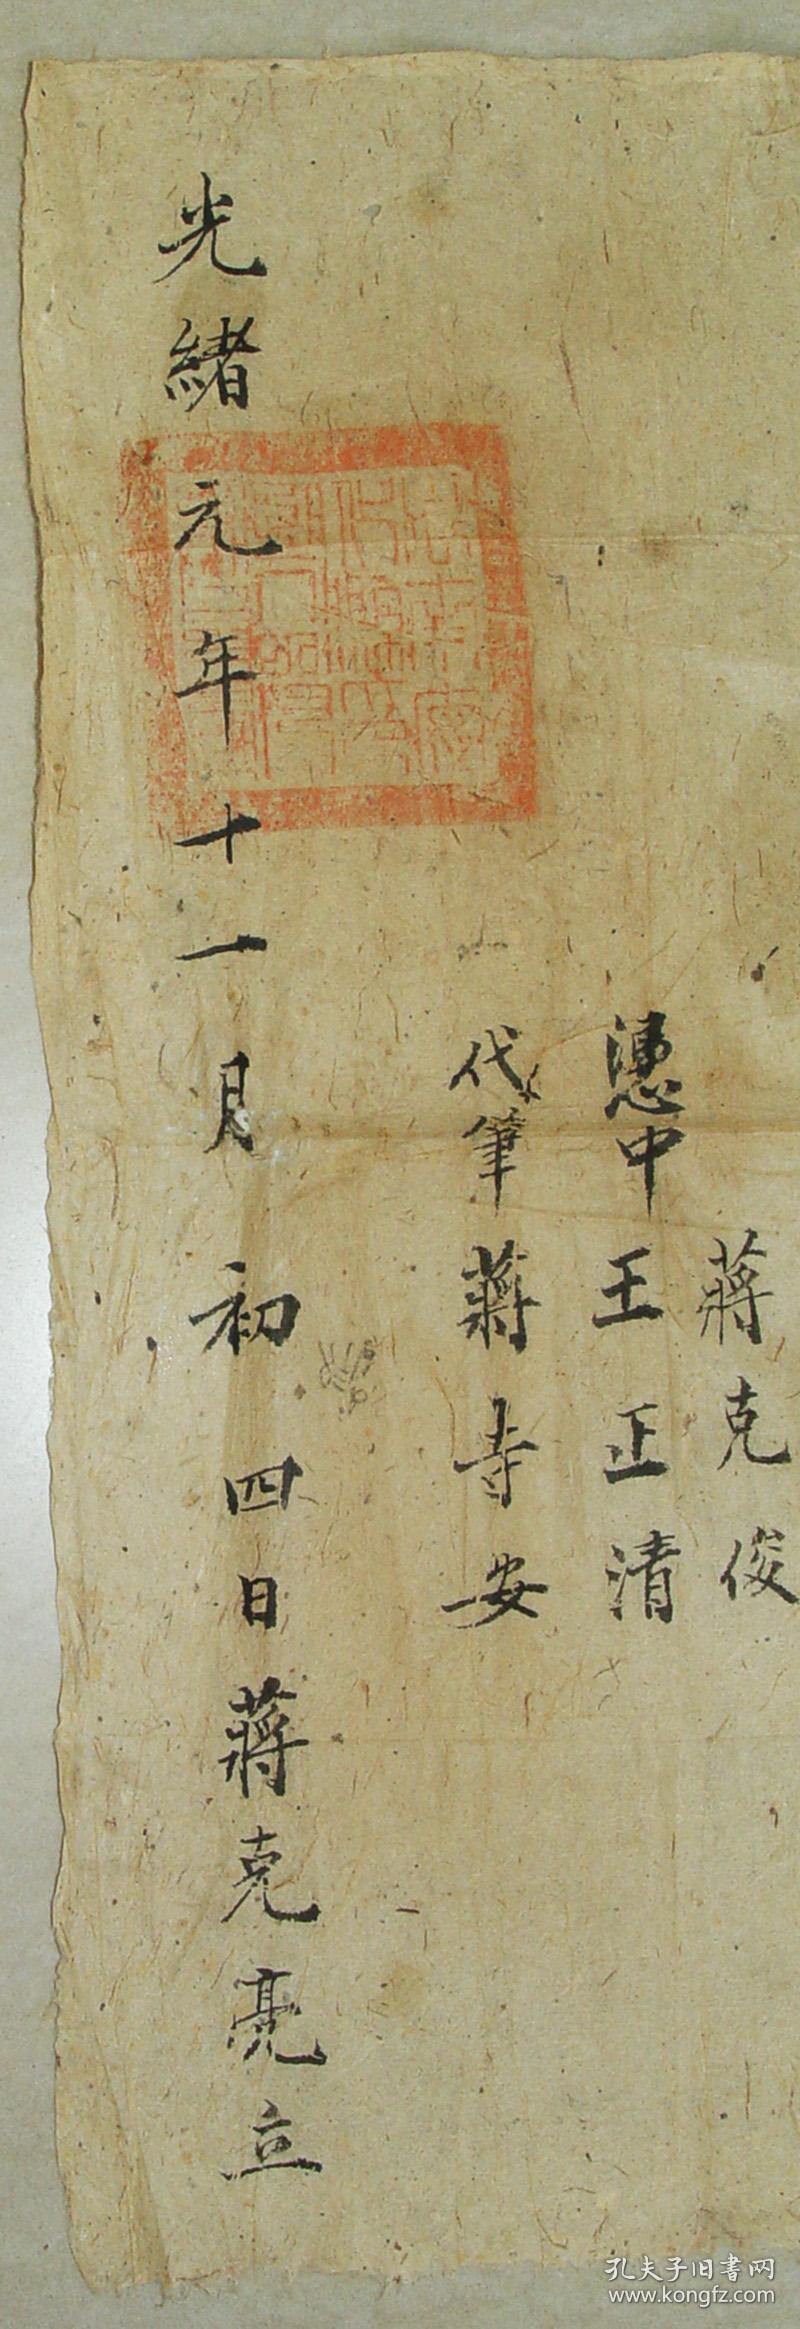 蔣克俊
憑中王正清
代筆蔣寺安
光緒元年十一月初四日蔣克亮立
孔夫子旧书网
www.kongfz.com